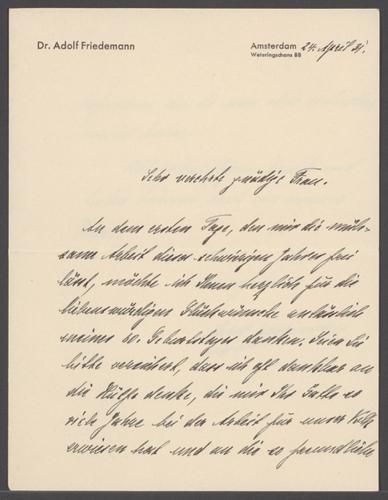 Dr. Adolf Friedemann
Amsterdam 24. April 31.
Weteringschans 88
Sehr verehrte gnädige Frau.
An dem ersten Tage, den mir die müh-
same Arbeit dieser schwierigen Jahre frei
lässt, möchte ich Ihnen herzlich für die
liebenswürdigen Glückwünsche anlässlich
meines 60. Geburtstages danken. Seien Sie
bitte versichert, dass ich oft dankbar an
die Hülfe denke, die mir Ihr Gatte so
viele Jahre bei der Arbeit für unser Volk
erwiesen hat und an die so freundliche